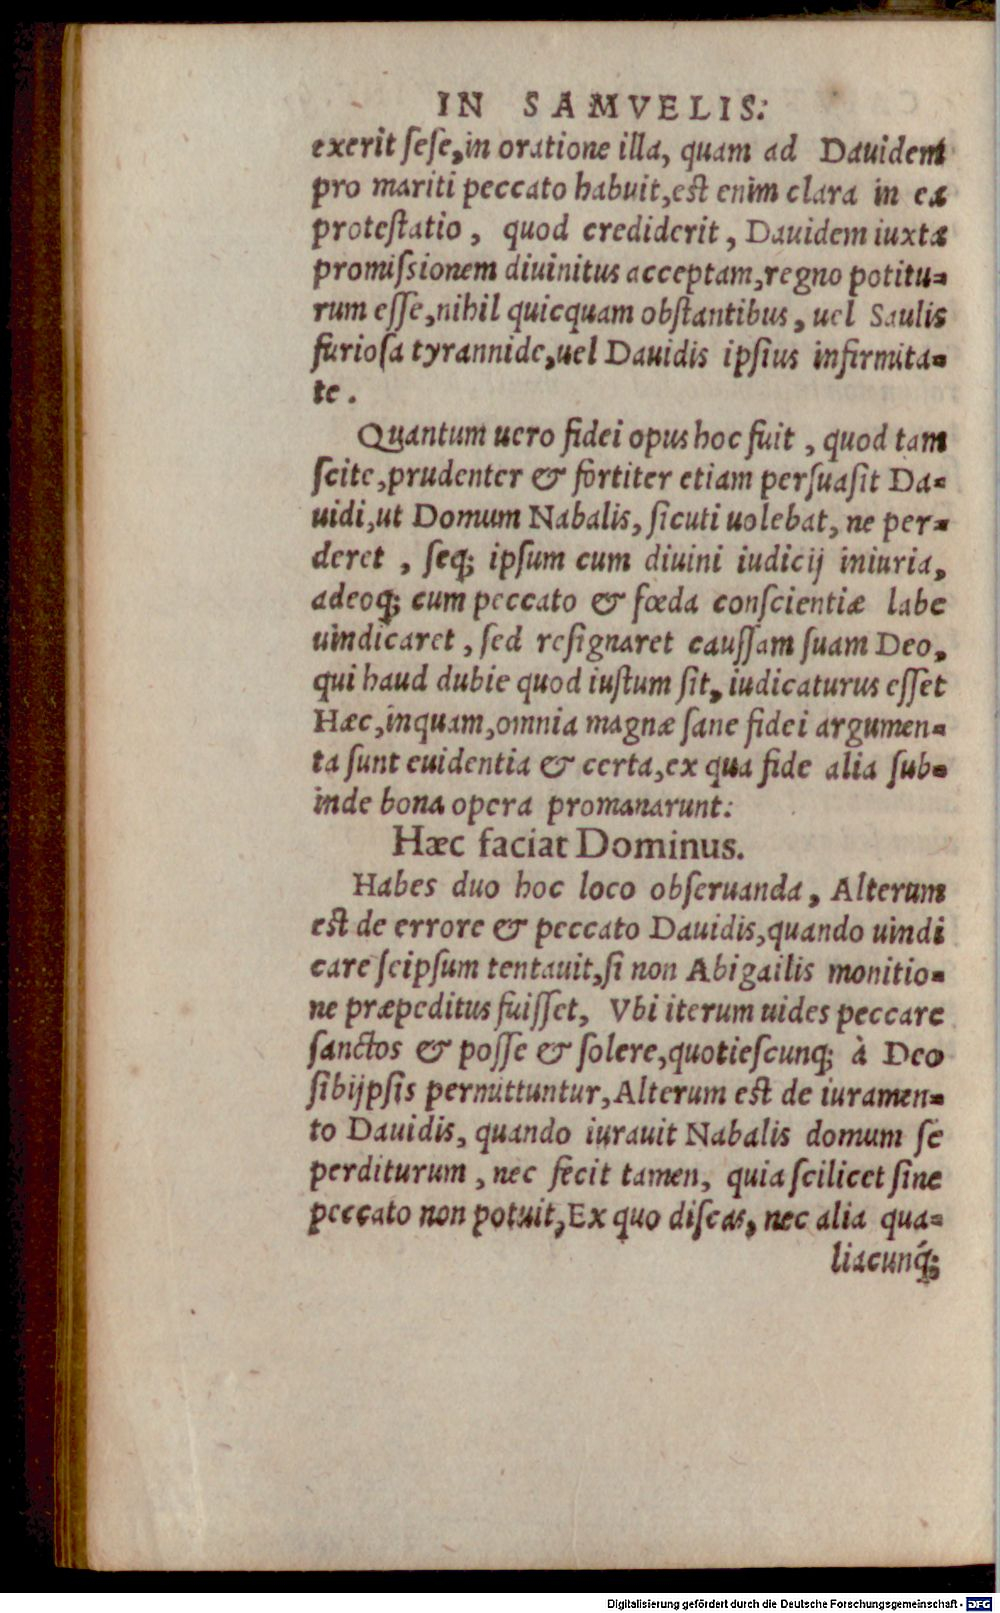 IN SAMVELIS:
exerit ſeſe, in oratione illa, quam ad Dauidem
pro mariti peccato habuit, est enim clara in ea
proteſtatio, quod crediderit, Dauidem iuxta
promiſsionem diuinitus acceptam, regno potitu=
rum eſſe, nihil quicquam obſtantibus, uel Saulis
furioſa tyrannide, uel Dauidis ipſius infirmita=
te.
Quantum uero fidei opus hoc fuit, quod tam
ſcite, prudenter & fortiter etiam perſuaſit Da=
uidi, ut Domum Nabalis, ſicuti uolebat, ne per=
deret, ſeq; ipſum cum diuini iudicij iniuria,
adeoq; cum peccato & fœda conſcientiæ labe
uindicaret, ſed reſignaret cauſſam ſuam Deo,
qui haud dubie quod iuſtum ſit, iudicaturus eſſet
Hæc, inquam, omnia magnæ ſane fidei argumen=
ta ſunt euidentia & certa, ex qua fide alia ſub=
inde bona opera promanarunt:
Hæc faciat Dominus.
Habes duo hoc loco obſeruanda, Alterum
eſt de errore & peccato Dauidis, quando uindi
care ſeipſum tentauit, ſi non Abigailis monitio=
ne præpeditus fuiſſet, Vbi iterum uides peccare
ſanctos & poſſe & ſolere, quotieſcunq; à Deo
ſibijpſis permittuntur, Alterum eſt de iuramen=
to Dauidis, quando iurauit Nabalis domum ſe
perditurum, nec fecit tamen, quia ſcilicet ſine
peccato non potuit, Ex quo diſcas, nec alia qua=
liacunq́;
Digitalisierung gefördert durch die Deutsche Forschungsgemeinschaft - DFG